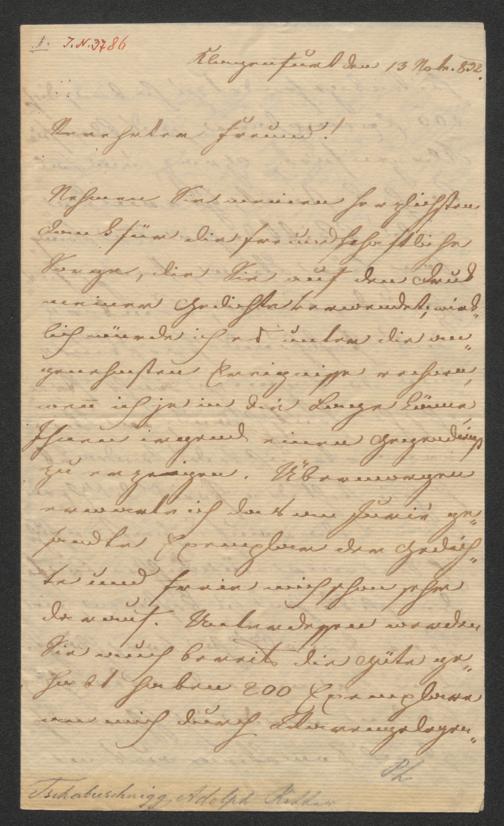 1. J.N. 3786
Klagenfurt den 13 Nov. 832.
Verehrter Freund!
Nehmen Sie meinen herzlichsten
Dank für die freundschaftliche
Sorge, die Sie auf den Druck
meiner Gedichte verwendet, wirk"
lich würde ich es unter die an"
genehmsten Ereignisse rechnen,
wen ich je in die Lage käme
Ihnen irgend einen Gegendienst
zu erzeigen. Übermorgen
erwarte ich das an Jurie ge"
sandte Exemplar der Gedich"
te und freue mich schon sehr
darauf. Unterdessen werden
Sie auch bereits die Güte ge"
habt haben 200 Exemplare
an mich durch Warengelegen"
Tschabuschnigg, Adolph Ritter